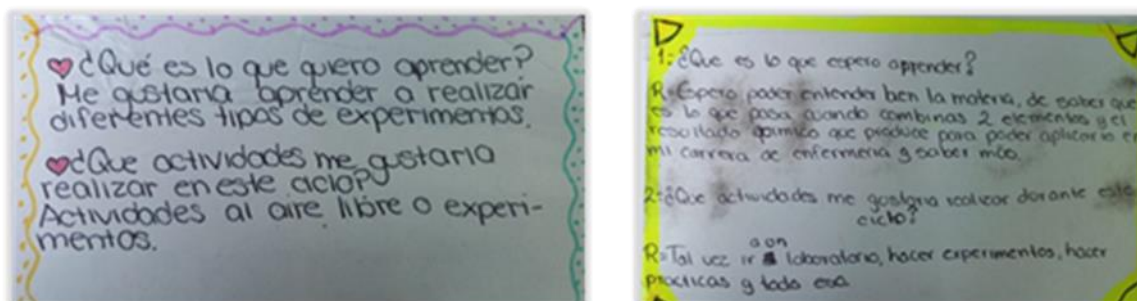 ¿Qué es lo que quiero aprender?
Me gustaria aprender a realizar
diferentes tipos de experimentos.
¿Que actividades me gustaria
realizar en este ciclo?
Actividades al aire libre o experi-
mentos.
1: ¿Que es lo que espero aprender?
R= Espero poder entender bien la materia, de saber que
es lo que pasa cuando combinas 2 elementos y el
resultado quimico que produce para poder aplicarlo en
mi carrera de enfermeria y saber más.
2: ¿Que actividades me gustaria realizar durante este
ciclo?
R= Tal vez ir a un laboratorio, hacer experimentos, hacer
practicas y todo eso.